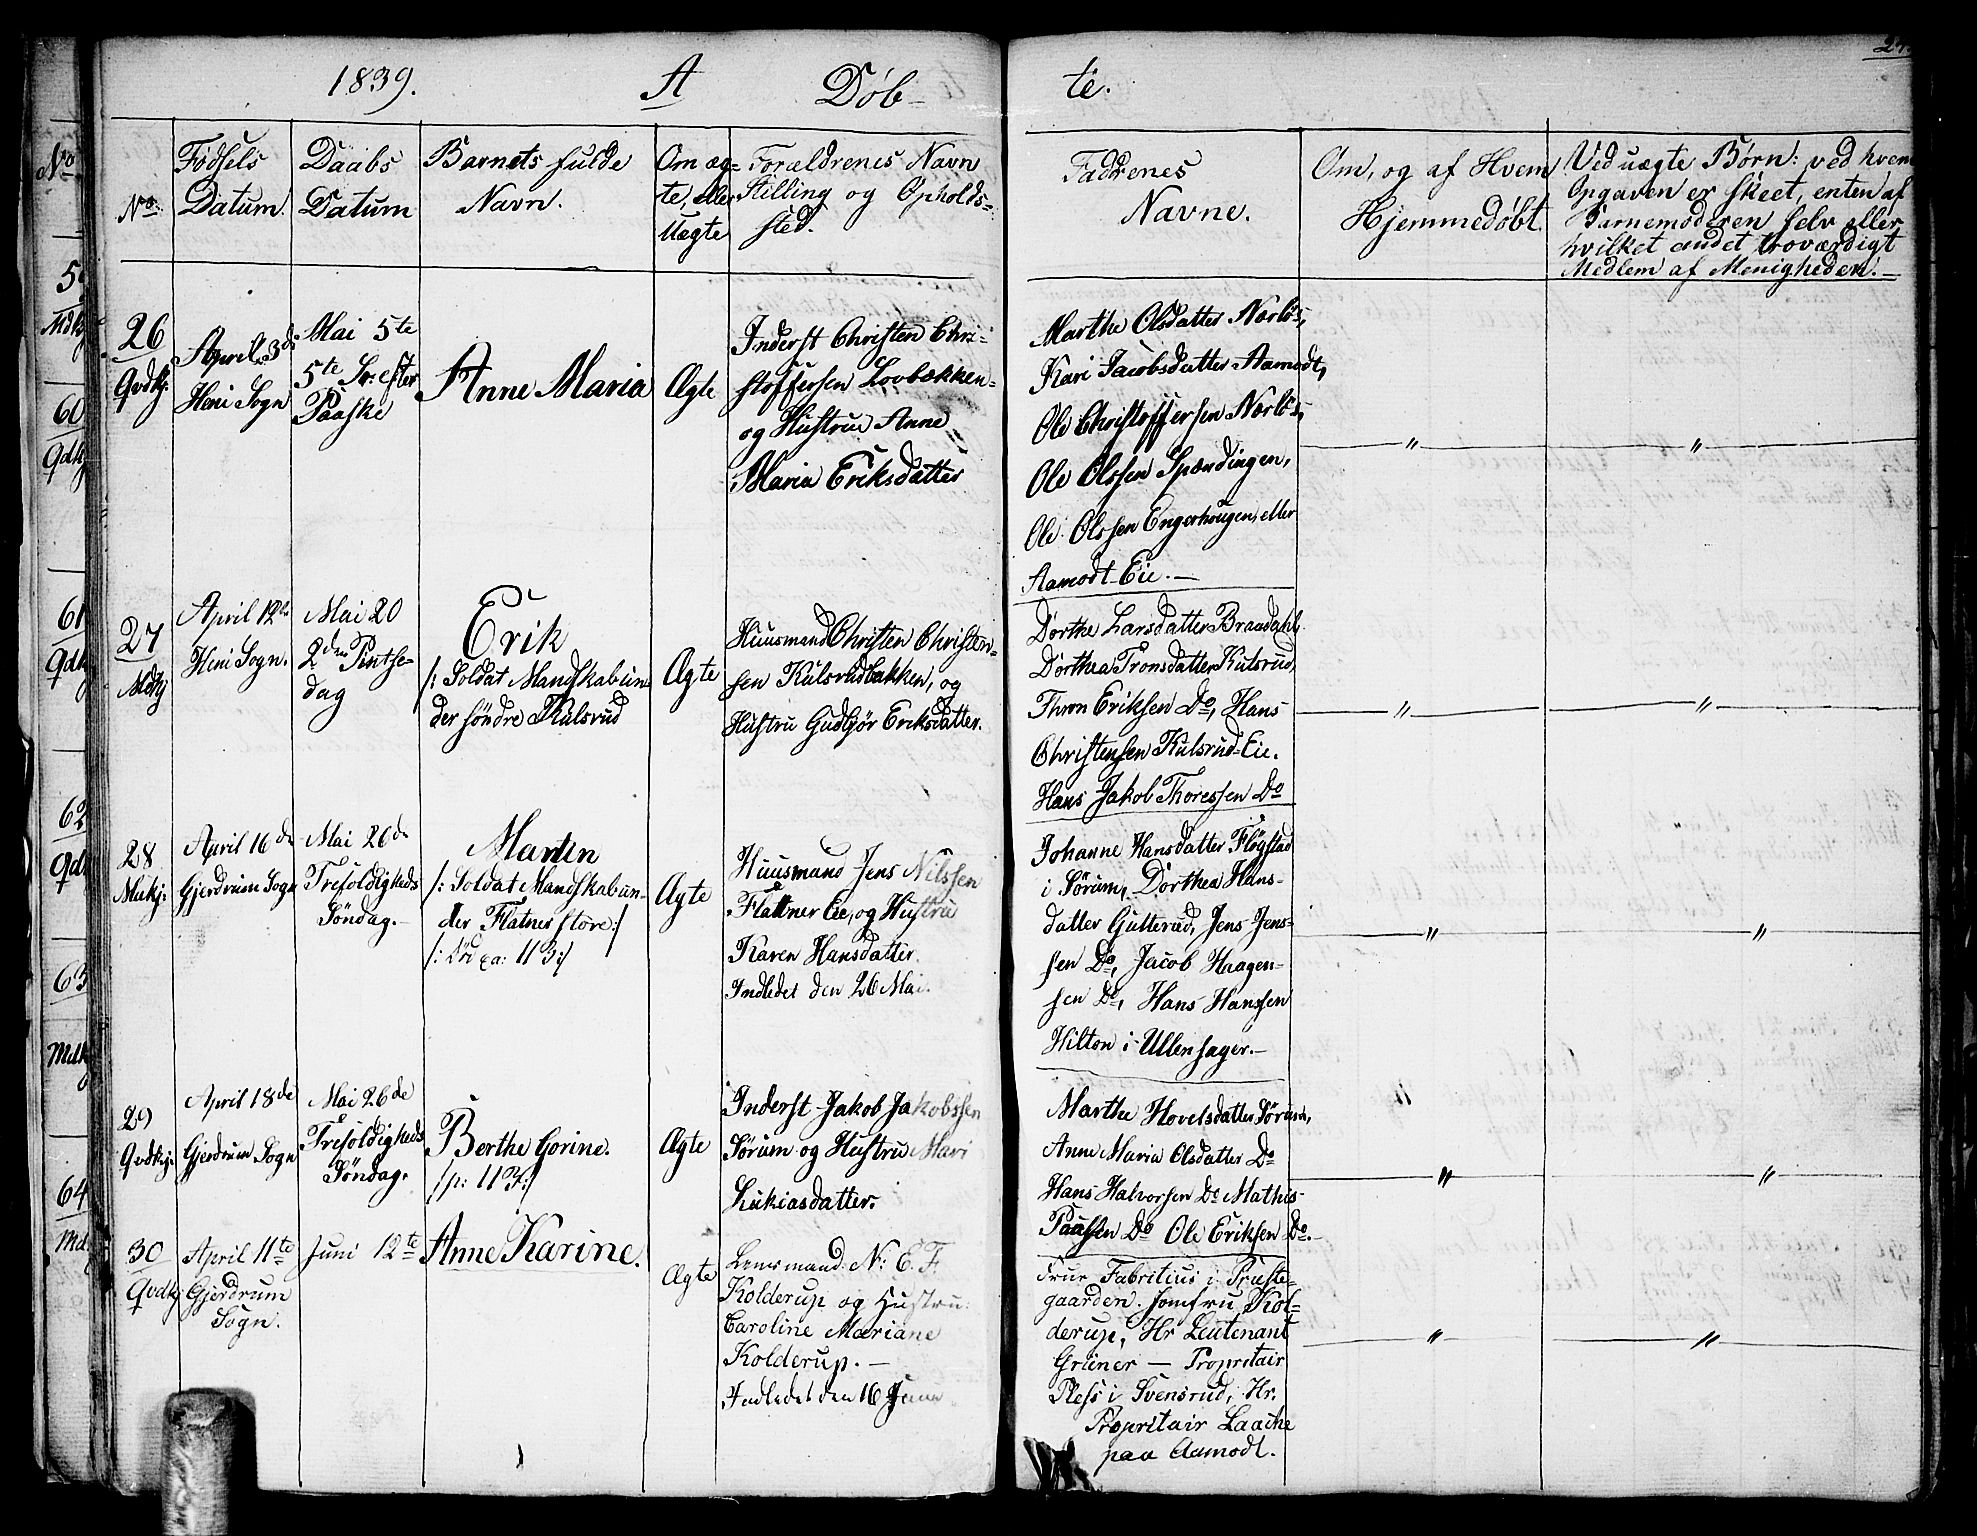 1839. A Døb- te.
No.
Fødsels Datum.
Daabs Datum
Barnets fulde Navn.
Om æg-
te, eller
Uægte
Forældrenes Navn
Stilling og Opholds-
sted.
Fadrenes
Navne.
Om, og af Hvem
Hjemmedøbt.
Ved uægte Børn: ved hvem
Opgaven er skeet, enten af
Barnemoderen selv eller
hvilket andet troværdigt
Medlem af Menigheden.
26
Qvdkj:
April 3de
Heni Sogn
Mai 5te
5te S: efter
Paaske
Anne Maria
Ægte
Inderst Christen Chri-
stoffersen Lovbækken-
og Hustrue Anne
Maria Eriksdatter
Marthe Olsdatter Nærløs,
Kari Jacobsdatter Aamodt,
Ole Christoffersen Nærløs,
Ole Olssen Spændingen,
Ole Olssen Engerhougen, eller
Aamodt-Eie.
"
"
27
Mdkj
April 12te
Heni Sogn.
Mai 20
2den Pintse-
dag
Erik
/: Soldat Mandskab un-
der søndre Kulsrud
Ægte
Huusmand Christen Christen-
sen Kulsrudbakken, og
Hustru Gudbjør Eriksdatter.
Dorthe Larsdatter Braadahl,
Dorthea Tronsdatter Kulsrud,
Thron Eriksen Do, Hans
Christensen Kulsrud-Eie.
Hans Jakob Thoressen Do
"
"
28
Mdkj:
April 16de
Gjerdrum Sogn
Mai 26de
Trefoldigheds
Søndag.
Marten
/: Soldat Mandskab un-
der Flatner store :/
/: 113 :/
Ægte
Huusmand Jens Nilssen
Flatner Eie, og Hustru
Karen Hansdatter.
Indledet den 26 Mai.
Johanne Hansdatter Fløgstad
i Sørum, Dorthea Hans-
datter Gutterud, Jens Jens-
sen Do, Jacob Haagen-
sen Do, Hans Hanssen
Hilton i Ullensager.
"
"
29
Qvdkj:
April 18de
Gjerdrum Sogn
Mai 26de
Trefoldigheds
Søndag.
Berthe Gorine.
/p: 113:/
Ægte
Inderst Jakob Jakobssen
Sørum og Hustru Mari
Lukiasdatter.
Marthe Hovelsdatter Sørum,
Anne Maria Olsdatter Do
Hans Halvorsen Do Mathis
Paulsen Do Ole Eriksen Do.
"
"
30
Qvdkj
April 11te
Gjerdrum
Sogn.
Juni 12te
Anne Karine.
Ægte
Lensmand N: E. F.
Kolderup og Hustru:
Caroline Mariane
Kolderup.
Indledet den 16 Juni
Frue Fabritius i Præste-
gaarden. Jomfru Kol-
derup, Hr Leutenant
Grüner — Propritair
Pless i Svensrud, Hr.
Propritair Laache
paa Aamodt.
"
"
60
61
62
63
64